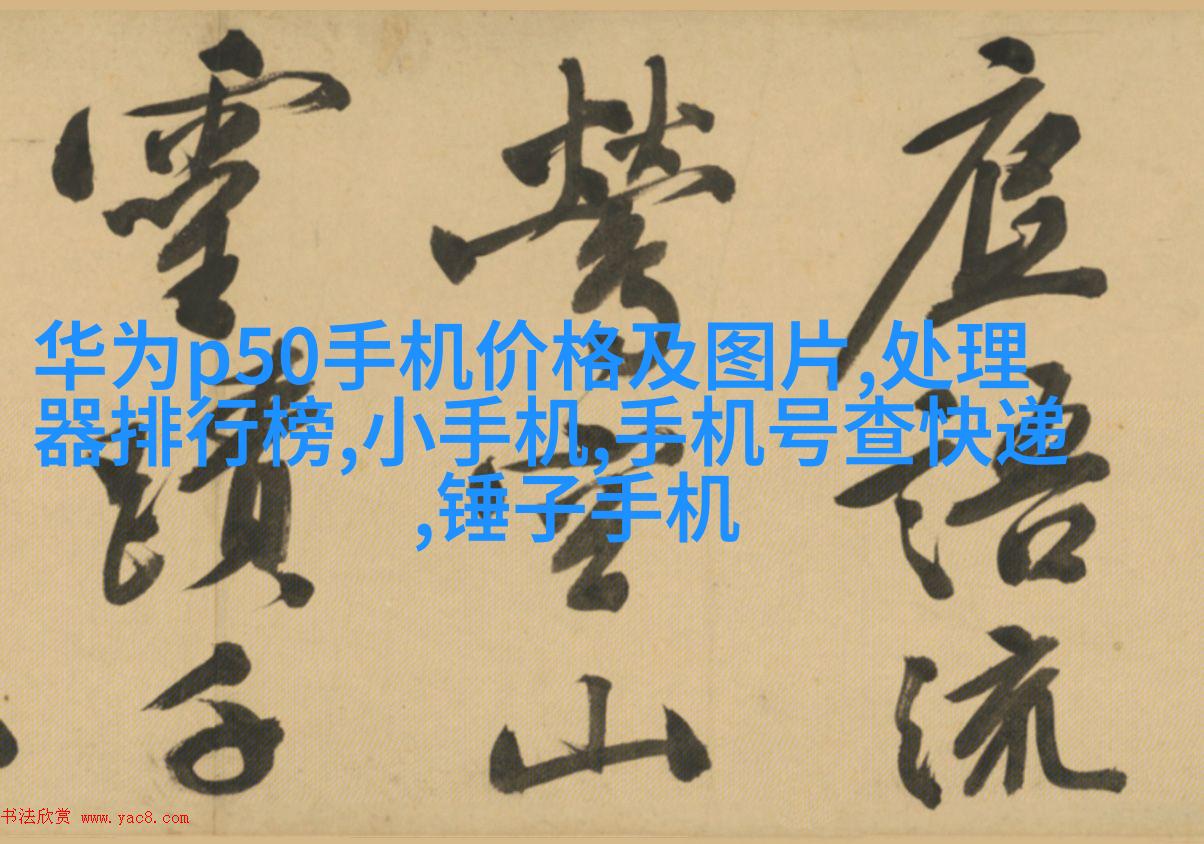 語流
鶯空山
靈蹟千
华为p50手机价格及图片,处理
器排行榜,小手机,手机号查快递
,锤子手机
书法欣赏 www.yac8.com